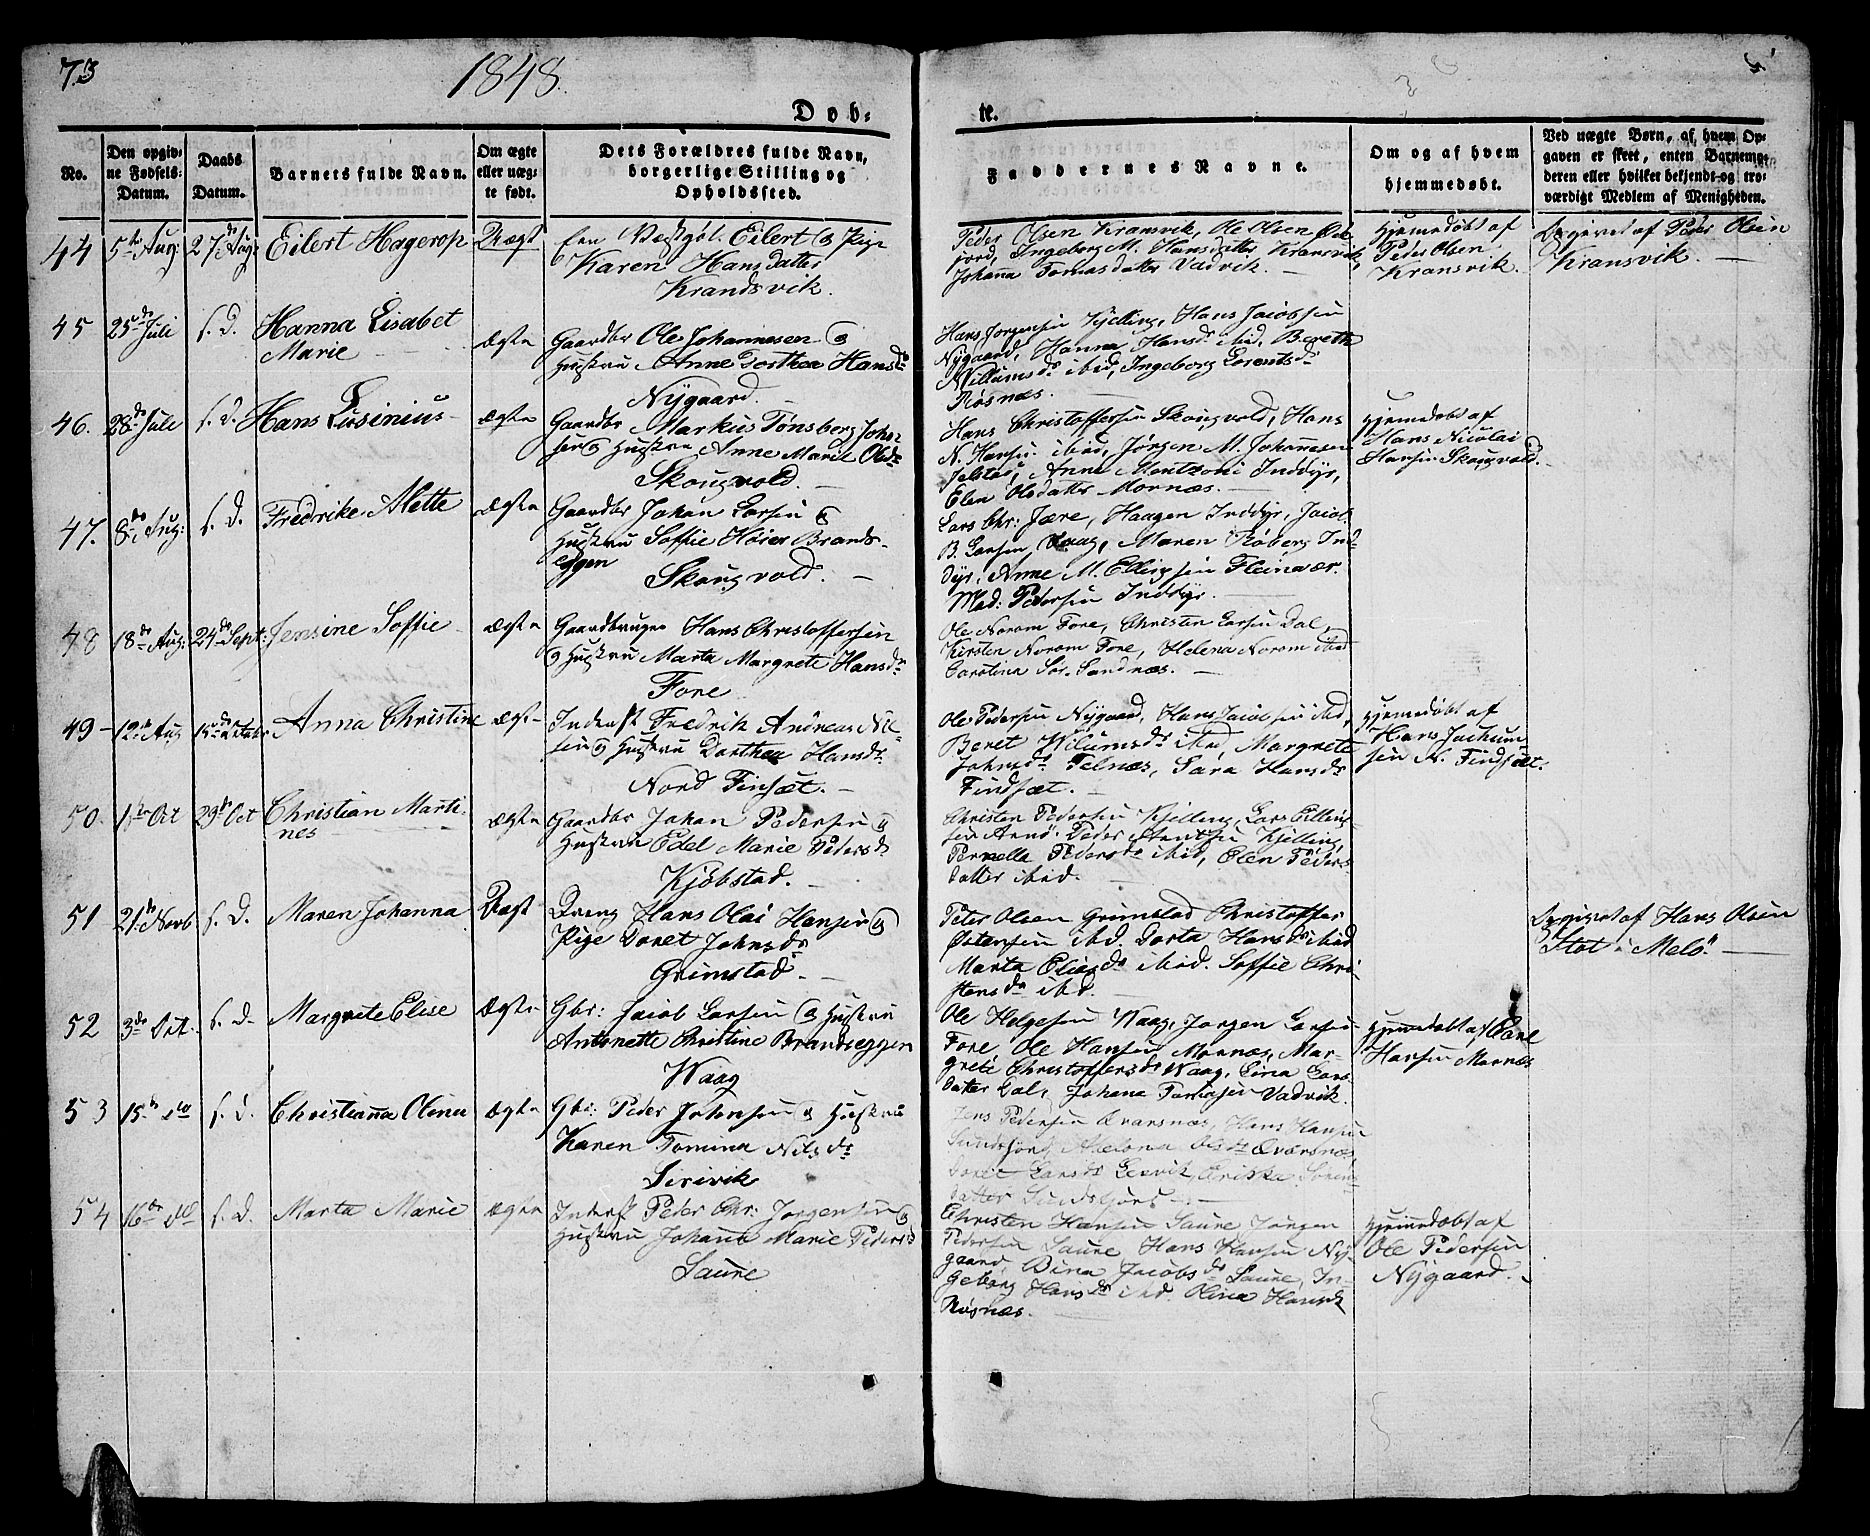 73
1848.
Døb-
te.
No.
Den opgiv-
ne Fødsels-
Datum.
Daabs
Datum.
Barnets fulde Navn.
Om ægte
eller uæg-
te født.
Dets Forældres fulde Navn,
borgerlige Stilling og
Opholdssted.
Faddernes Navne.
Om og af hvem
hjemmedøbt.
Ved uægte Børn, af hvem Op-
gaven er skeet, enten Barnemo-
deren eller hvilket bekjendt og tro-
værdigt Medlem af Menigheden.
44 5te Aug: 27de Aug: Eilert Hagerop Uægte
Eilert og Pige
Karen Hansdatter
Krandsvik.
Peder Olsen Kransvik, Ole Olsen
jord, Ingeborg M. Hansdatter Kransvik,
Johanna Tomasdatter Vadvik. -
Hjemmedøbt af
Peder Olsen
Kransvik.
Opgivet af Peder Olsen
Kransvik. -
45 25de Juli s. D. Hanna Lisabet
Marie
ægte
Gaardbr Ole Johannesen og
Hustru Anne Dorthea Hansdr
Nygaard.
Hans Jørgensen Kjelling, Hans Jacobsen
Nygaard, Hanna Hansdr ibid, Bereth
Willumsdr ibid, Ingeborg Lorentsdr
Røsnæs.
46. 28de Juli s. D. Hans Lusinius ægte
Gaardbr Markus Tønsberg John
sen og Hustru Anne Marie Olsdr
Skougvold. -
Hans Christoffersen Skougvold, Hans
N. Hansen ibid, Jørgen M. Johannesen
Selstad, Anne Montzoni Inddyr,
Elen Olsdatter Mornæs.
Hjemmedøbt af
Hans Nicolai
Hansen Skougvold.
47. 8de Aug: s. D. Fredrike Alette ægte
Gaardbr Johan Larsen og
Hustru Soffie Høier Brands-
eggen
Skougvold. -
Lars Chr: Jære, Haagen Inddyr, Jacob
B. Larsen Vaag, Maren Røberg Ind-
dyr, Anne M. Ellingsen Fleinvær.
Mad: Pedersen Inddyr.
48 18de Aug: 24de Sept: Jensine Soffie ægte
Gaardbruger Hans Christoffersen
og Hustru Marta Margrete Hansdr
Fore
Ole Norom Fore, Christen Larsen Dal,
Kirsten Norom Fore, Helena Norom ibid
Carolina Sør. Sandnæs. -
49 - 12te Aug 15de Octobr Anna Christine ægte
Inderst Fredrik Andreas Nil-
sen og Hustru Dorthea Hansdr
Nord Finsæt. -
Ole Pedersen Nygaard, Hans Jacobsen ibid,
Beret Wilumsdr ibid, Margrete
Johnsdr Telnæs, Sara Hansdr
Findsæt.
Hjemmedøbt af
Hans Jochum
sen N. Findsæt.
50. 1ste Oct 29de Oct Christian Marti-
nes
ægte
Gaardbr Johan Pedersen og
Hustru Edel Marie Pedersdr
Kjøbstad. -
Christen Pedersen Kjelling, Lars Elling-
sen Arnø. Peder Arntsen Kjelling,
Pernella Pedersdr ibid, Elen Peders
datter ibid.
51 21de Novb s. D. Maren Johanna Uægte
Dreng Hans Olai Hansen og
Pige Doret Johnsdr
Grimstad. -
Peter Olsen Grimstad Christoffer
Østensen ibd. Dorta Hansdr ibid
Marta Eliasdr ibid. Soffie Chri-
stensdr ibd.
Opgivet af Hans Olsen
Støt i Melø. -
52 3de Oct. s. D. Margrete Elise ægte
Gbr: Jacob Larsen og Hustru
Antonette Christine Brandseggen
Waag
Ole Helgesen Waag, Jørgen Larsen
Fore Ole Hansen Mornæs, Mar-
grete Christoffersdr Waag, Lina Lars
datter Dal, Johana Tomesen Vadvik.
Hjemmedøbt af Carl
Hansen Mornæs
53 15de do s. D. Christianna Olina ægte
Gbr: Peder Johnsen og Hustru
Karen Tomina Nilsdr
Serivik
Jens Pedersen Qvarsnæs, Hans Hansen
Sundsfjord, Olsdr Qværsnæs
Doret Larsdr Leevik, Søren-
datter Sundsfjord
54 16de do s. D. Marta Marie ægte
Inderst Peder Chr: Jørgensen og
Hustru Johanna Marie Pedersd
Saure
Christen Hansen Saure Jørgen
Pedersen Saure, Hans Hansen Ny-
gaard, Dina Jacobsdr Saure, In-
geborg Hansdr ibd. Olina Hansdr
Røsnæs.
Hjemmedøbt af
Ole Pedersen
Nygaard. -